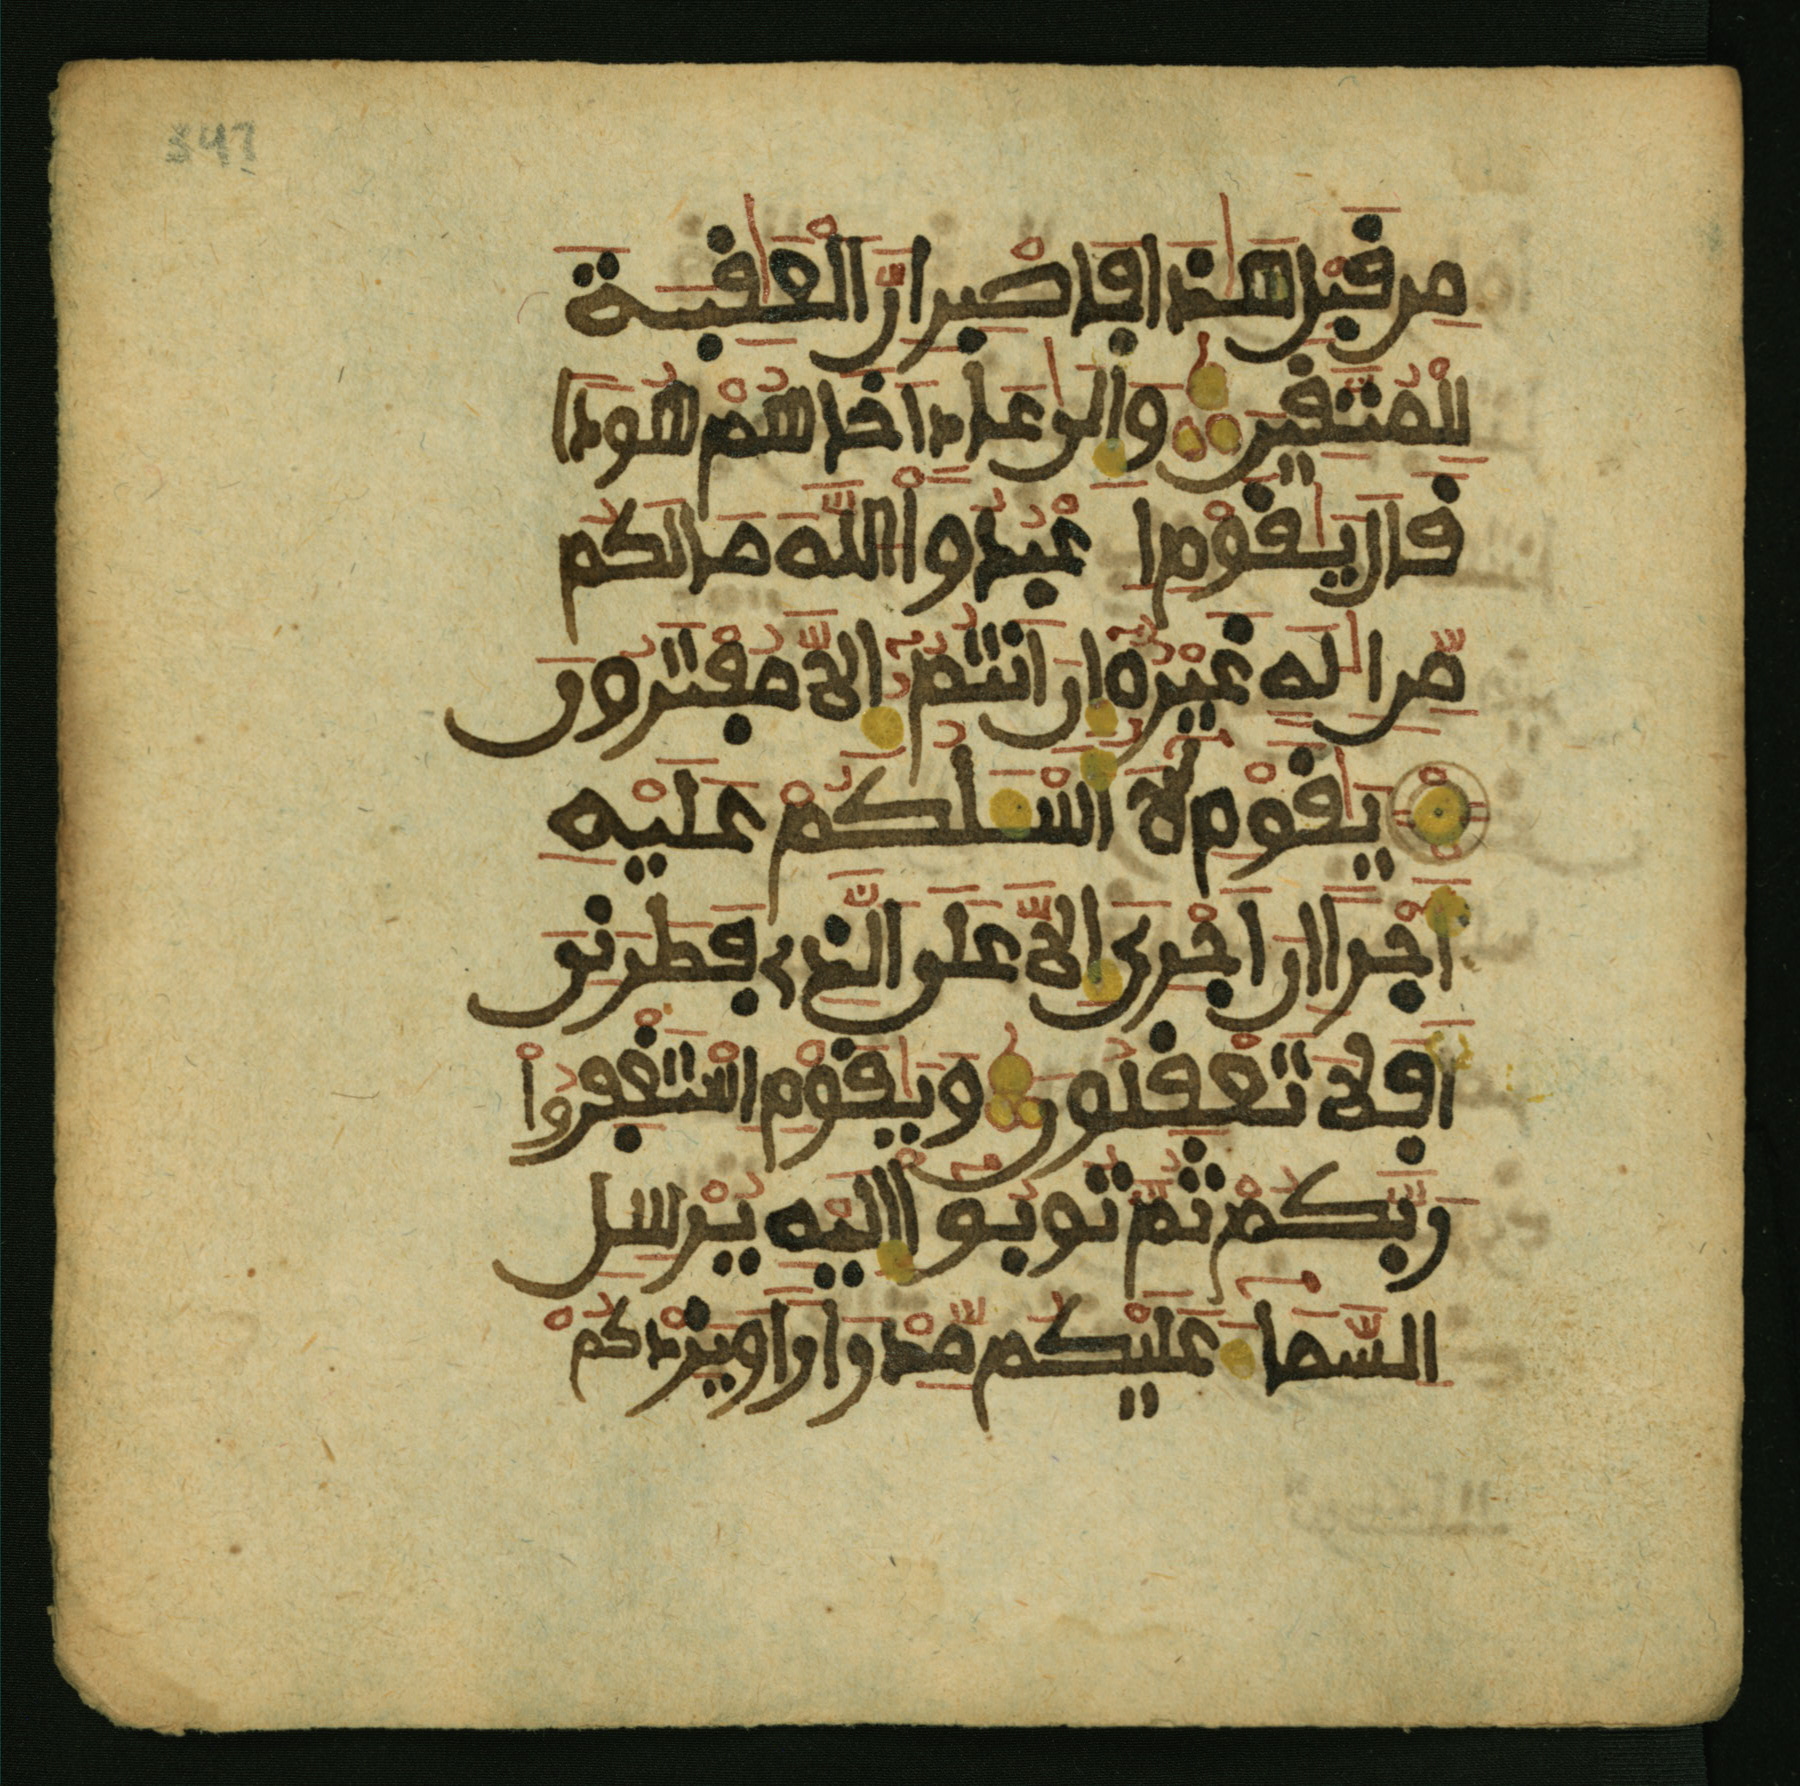 مِن قَبْلِ هَٰذَا فَاصْبِرِ انَّ الْعَٰقِبَةَ
لِلْمُتَّقِينَ وَإِلَىٰ عَادٍ اَخَاهُمْ هُودًا
قَالَ يَٰقَوْمِ اعْبُدُواْ اللَّهَ مَا لَكُم
مِّنِ الَٰهٍ غَيْرُهُ إِنَ انتُمُ إِلاَّ مُفْتَرُونَ
يَٰقَوْمِ لَا أَسْـَٔلُكُمْ عَلَيْهِ
أَجْراً اِنَ اَجْرِيَ إِلاَّ عَلَى الَّذِي فَطَرَنِي
أَفَلَا تَعْقِلُونَ وَيَٰقَوْمِ اسْتَغْفِرُواْ
رَبَّكُمْ ثُمَّ تُوبُواْ إِلَيْهِ يُرْسِلِ
السَّمَآءَ عَلَيْكُم مِّدْرَاراً وَيَزِدْكُمْ